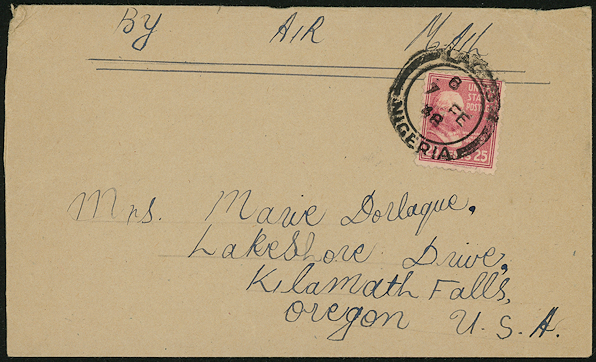 By AIR MAIL
LAGOS
8
7 FE
48
NIGERIA
UNI
STAT
POST
25
Mrs. Marie Dorlaque,
Lakeshore Drive,
Kilamath Falls,
Oregon U.S.A.